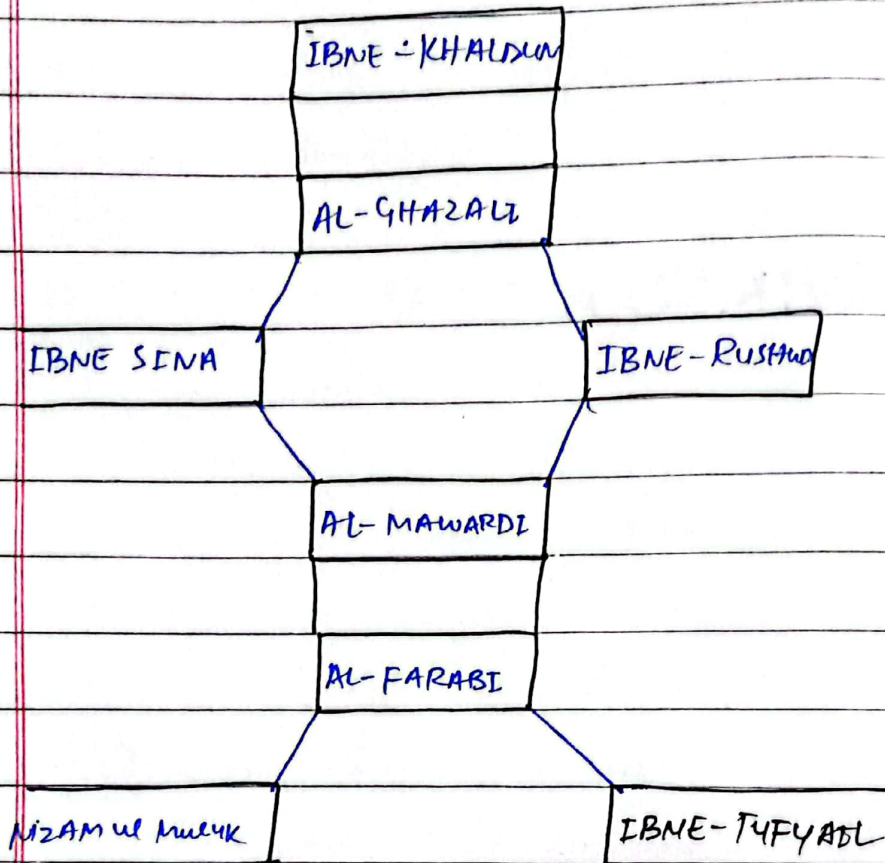 IBNE-KHALDUN
AL-GHAZALI
IBNE SINA
IBNE-RUSHUD
AL-MAWARDI
AL-FARABI
NIZAM Ul Mulyk
IBNE-TYFYAEL